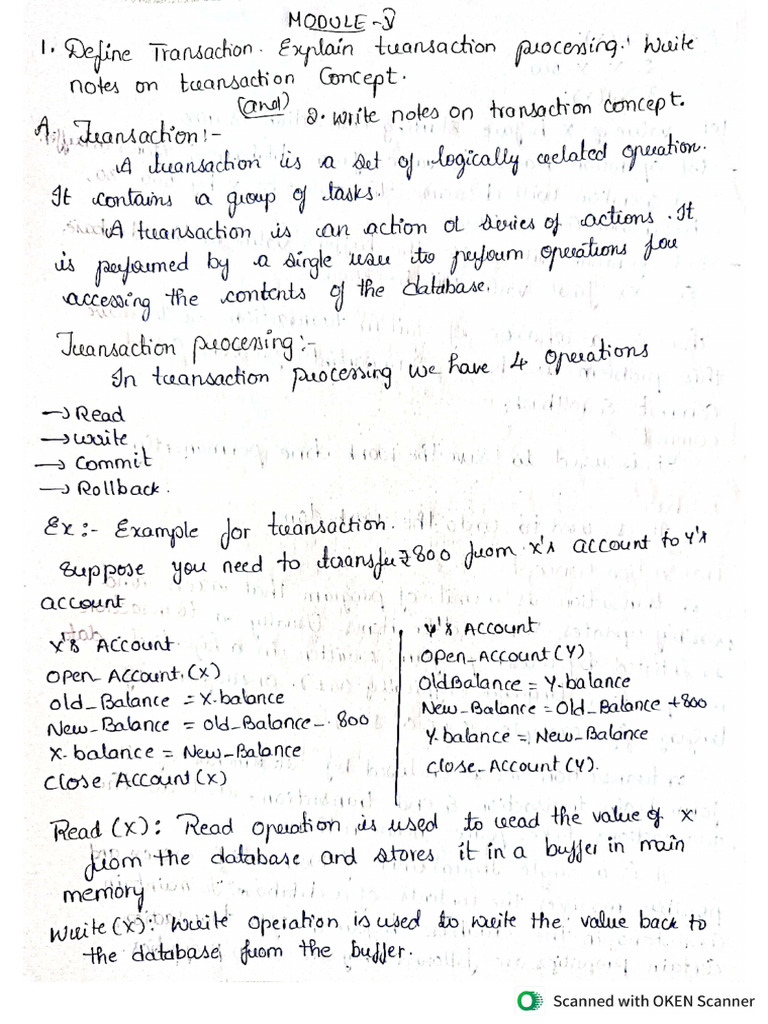 MODULE-V
1. Define Transaction. Explain transaction processing. Write
notes on transaction Concept.
(and) 2. write notes on transaction concept.
A. Transaction:-
A transaction is a set of logically related operation.
It contains a group of tasks.
A transaction is an action or series of actions. It
is performed by a single user to perform operations for
accessing the contents of the database.
Transaction processing:-
In transaction processing we have 4 operations
→ Read
→ write
→ Commit
→ Rollback.
Ex:- Example for transaction.
Suppose you need to transfer ₹800 from x's account to Y's
account
X's Account
Open_Account(X)
Old_Balance = X.balance
New_Balance = Old_Balance - 800
X.balance = New_Balance
Close Account(X)
Y's Account
Open_Account(Y)
OldBalance = Y.balance
New_Balance = Old_Balance +800
Y.balance = New_Balance
Close_Account(Y).
Read(X): Read operation is used to read the value of X
from the database and stores it in a buffer in main
memory
Write(X): Write operation is used to write the value back to
the database from the buffer.
Scanned with OKEN Scanner